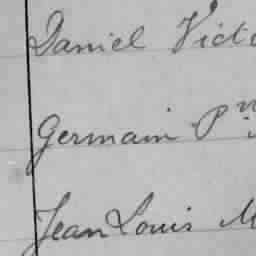 Daniel Vict
Germain Pre
Jean Louis M